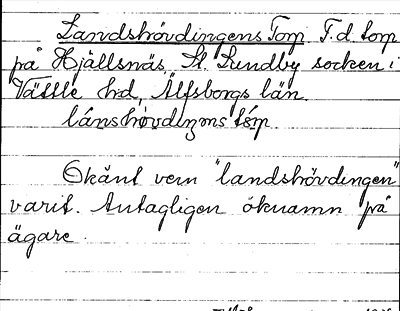 Landshövdingens Torp F.d. torp
på Hjällsnäs, St. Lundby socken i
Vättle hd, Älfsborgs län.
lánshøvdiŋəns tórp.
Okänt vem "landshövdingen"
varit. Antagligen öknamn på
ägare.